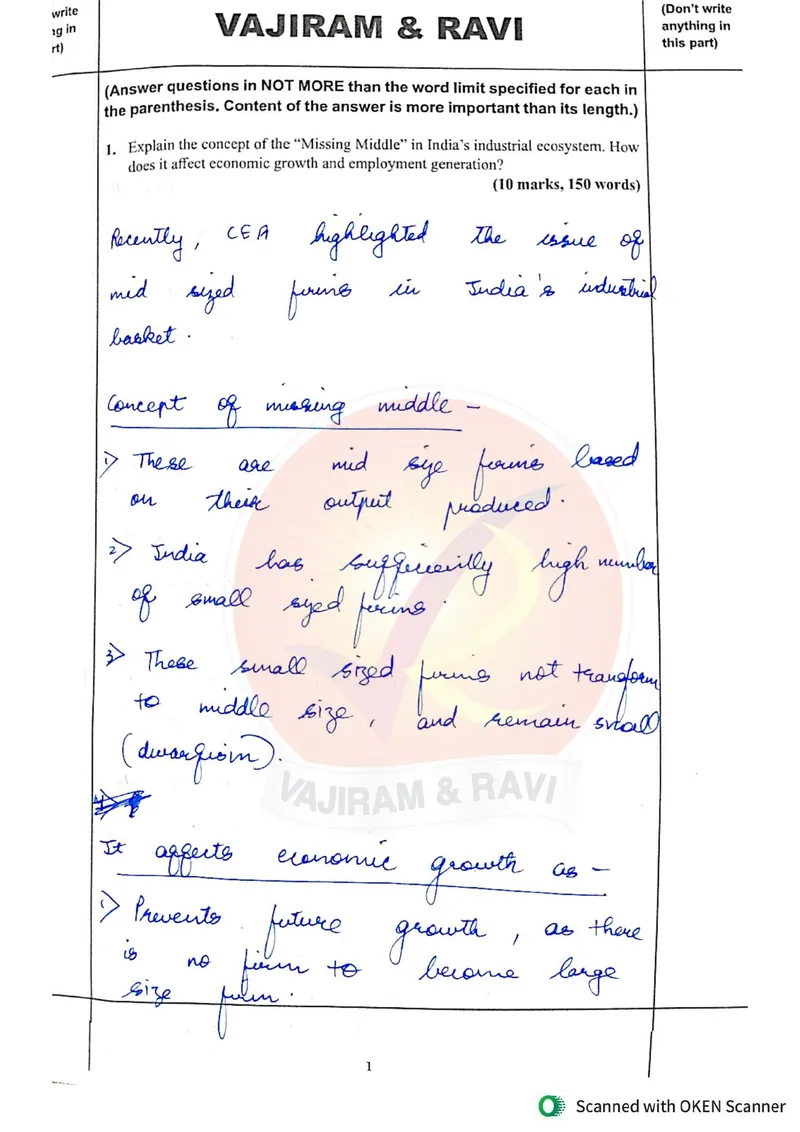 write
ng in
rt)
VAJIRAM & RAVI
(Don't write
anything in
this part)
(Answer questions in NOT MORE than the word limit specified for each in
the parenthesis. Content of the answer is more important than its length.)
1. Explain the concept of the “Missing Middle” in India's industrial ecosystem. How
does it affect economic growth and employment generation?
(10 marks, 150 words)
Recently, CEA highlighted the issue of
mid sized firms in India's industrial
basket.
Concept of missing middle -
1> These are mid size firms based
on their output produced.
2> India has sufficiently high number
of small sized firms.
3> These small sized firms not transform
to middle size, and remain small
(dwarfism).
It affects economic growth as -
1> Prevents future growth, as there
is no firm to become large
size firm.
VAJIRAM & RAVI
1
Scanned with OKEN Scanner